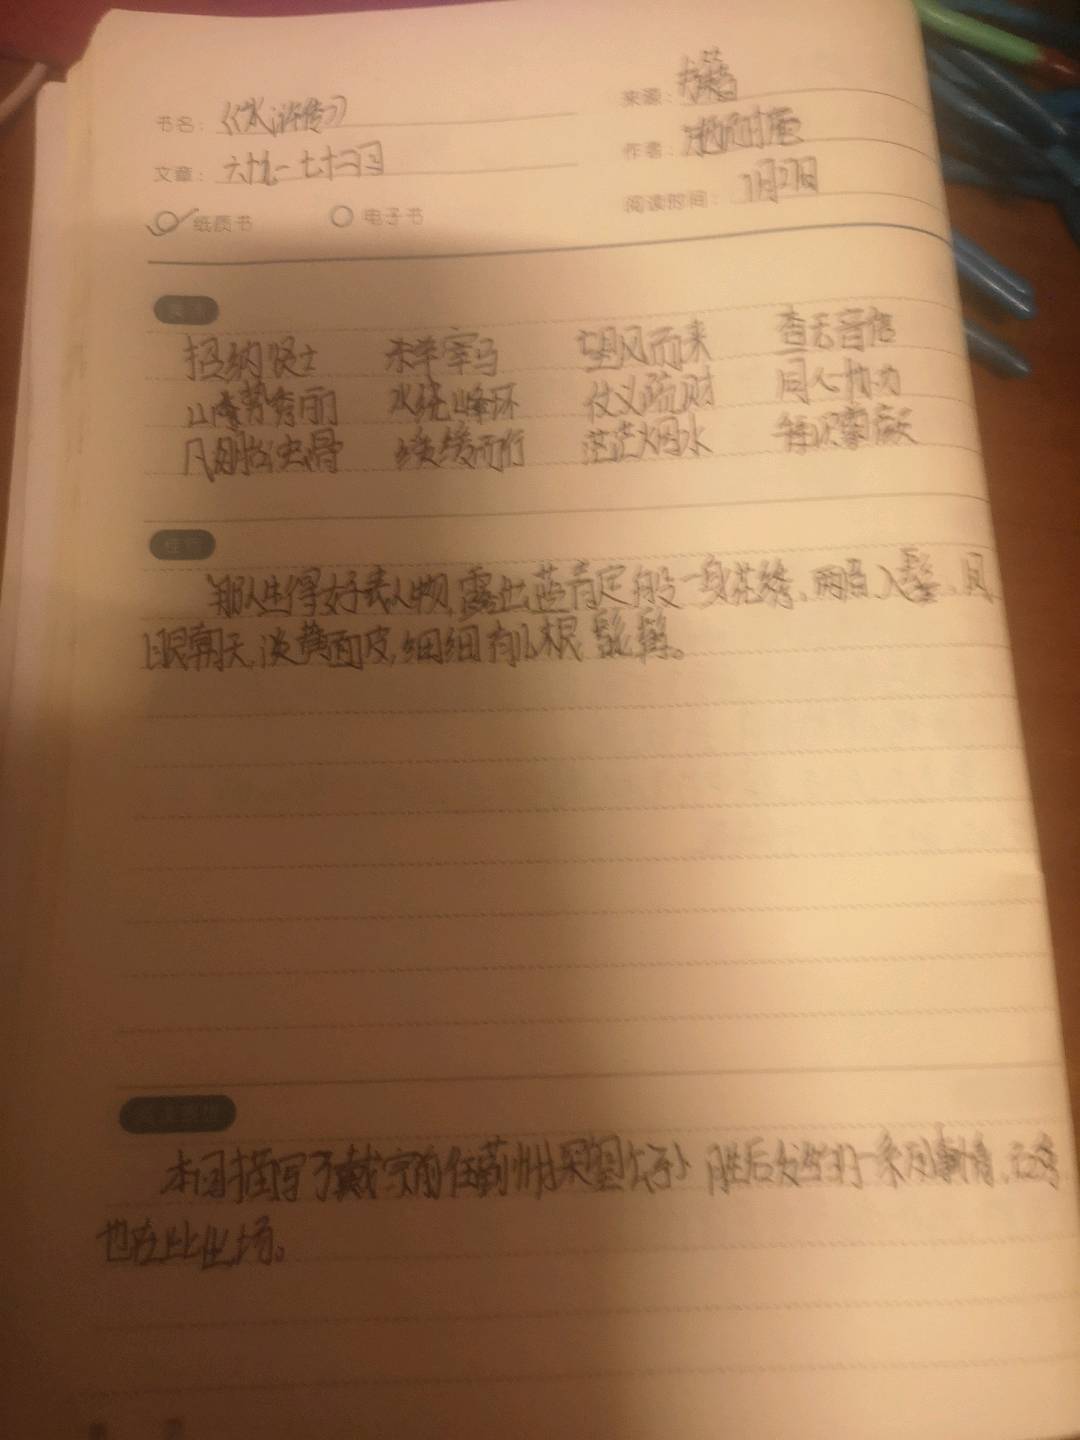 书名：《水浒传》 来源：书籍
文章：六十九一七十二回 作者：施耐庵
纸质书 电子书 阅读时间：7月27日
招纳贤士 木羊宰马 望风而来 杳无音信
山势秀丽 水绕峰环 仗义疏财 同心协力
缓缓而行 茫茫烟水
那人生得好表人物，露出蓝青定般一身花绣，两眉入鬓，凤
眼朝天，淡黄面皮，细细有几根髭髯。
本回描写了戴宗前往蓟州 公孙胜后发生的一系列事情，
也在此出场。